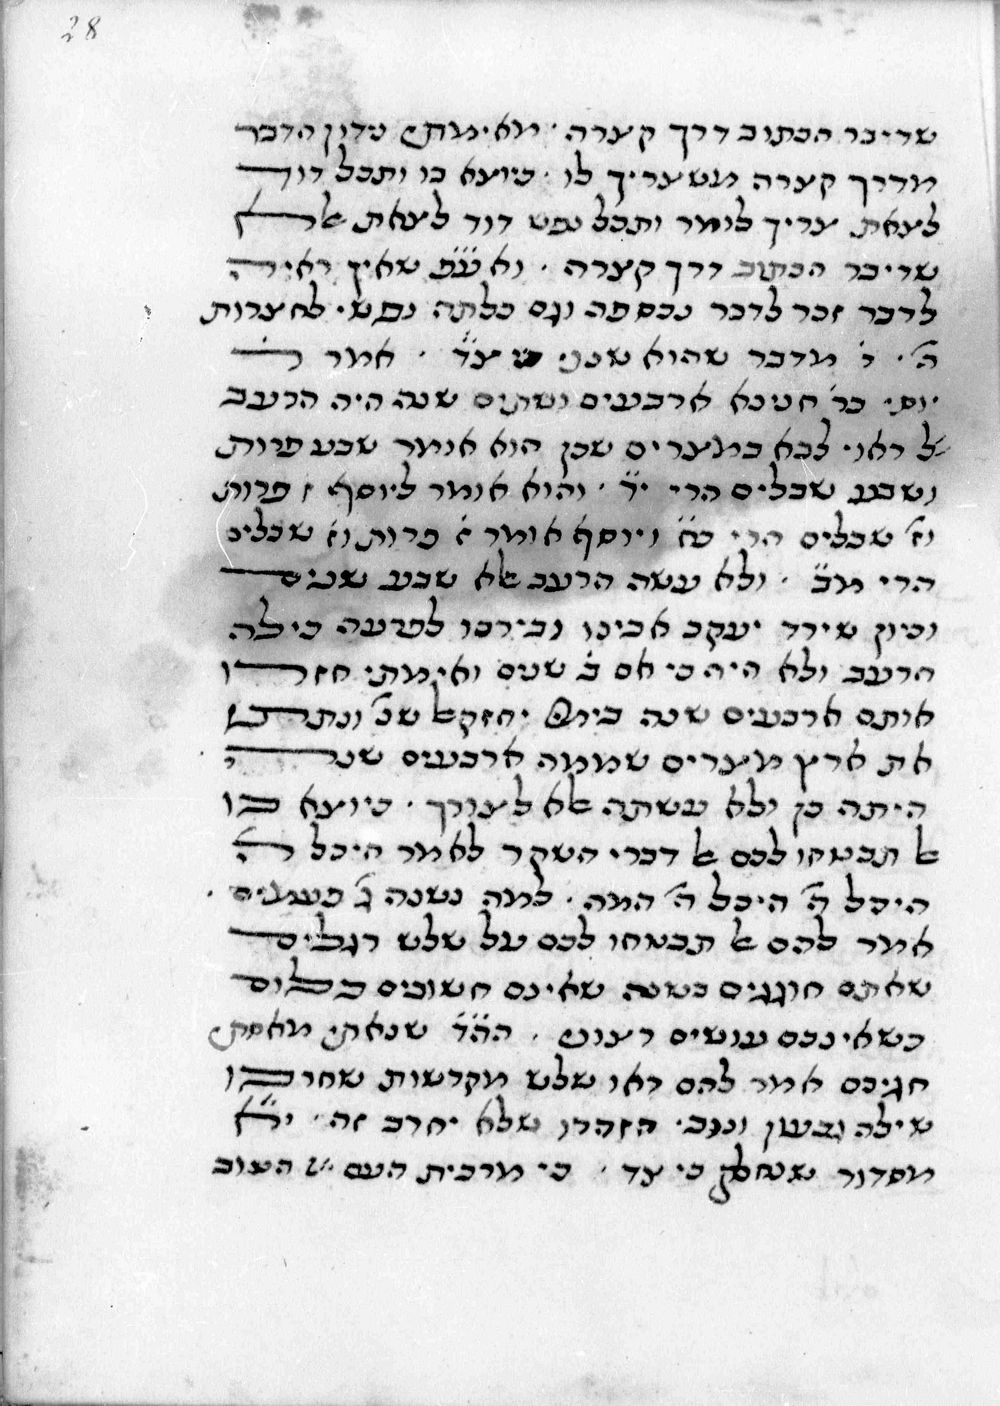 28
שדיבר הכתוב דרך קצרה · מאימתי נידון הדבר
מדרך קצרה משצריך לו · כיוצא בו ותכל דוד
לצאת צריך לומר ותכל נפש דוד לצאת אלא
שדיבר הכתוב דרך קצרה · ואע״פ שאין ראיה
לדבר זכר לדבר נכספה וגם כלתה נפשי לחצרות
ה׳ · ל׳ מדבר שהוא שנוי כיצד · אמר ר׳
יוסי בר׳ חנינא ארבעים ושתים שנה היה הרעב
ל ראוי לבא במצרים שכן הוא אומר שבע פרות
ושבע שבלים הרי י״ד · והוא אומר ליוסף ז׳ פרות
וז׳ שבלים הרי כ״ח ויוסף אומר ז׳ פרות וז׳ שבלים
הרי מ״ב · ולא עשה הרעב אלא שבע שנים
וכיון שירד יעקב אבינו ובירכו לפרעה כילה
הרעב ולא היה כי אם ב׳ שנים ואימתי חזרו
אותם ארבעים שנה בימי יחזקאל שנ׳ ונתתי
את ארץ מצרים שממה ארבעים שנה
היתה כן ולא עשתה אלא לצורך · כיוצא בו
אל תבטחו לכם אל דברי השקר לאמר היכל ה׳
היכל ה׳ היכל ה׳ המה · למה נשנה ג׳ פעמים ·
אמר להם אל תבטחו לכם על שלש רגלים
שאתם חוגגים בשנה שאינם חשובים כלום
כשאינכם עושים רצוני · הה״ד שנאתי מאסתי
חגיכם אמר להם ראו שלש מקדשות שחרבו
שילה גבעון ונוב · הזהרו שלא יחרב זה · י״א
מסדור שנחלק כי צד · כי מרבית העם הטוב